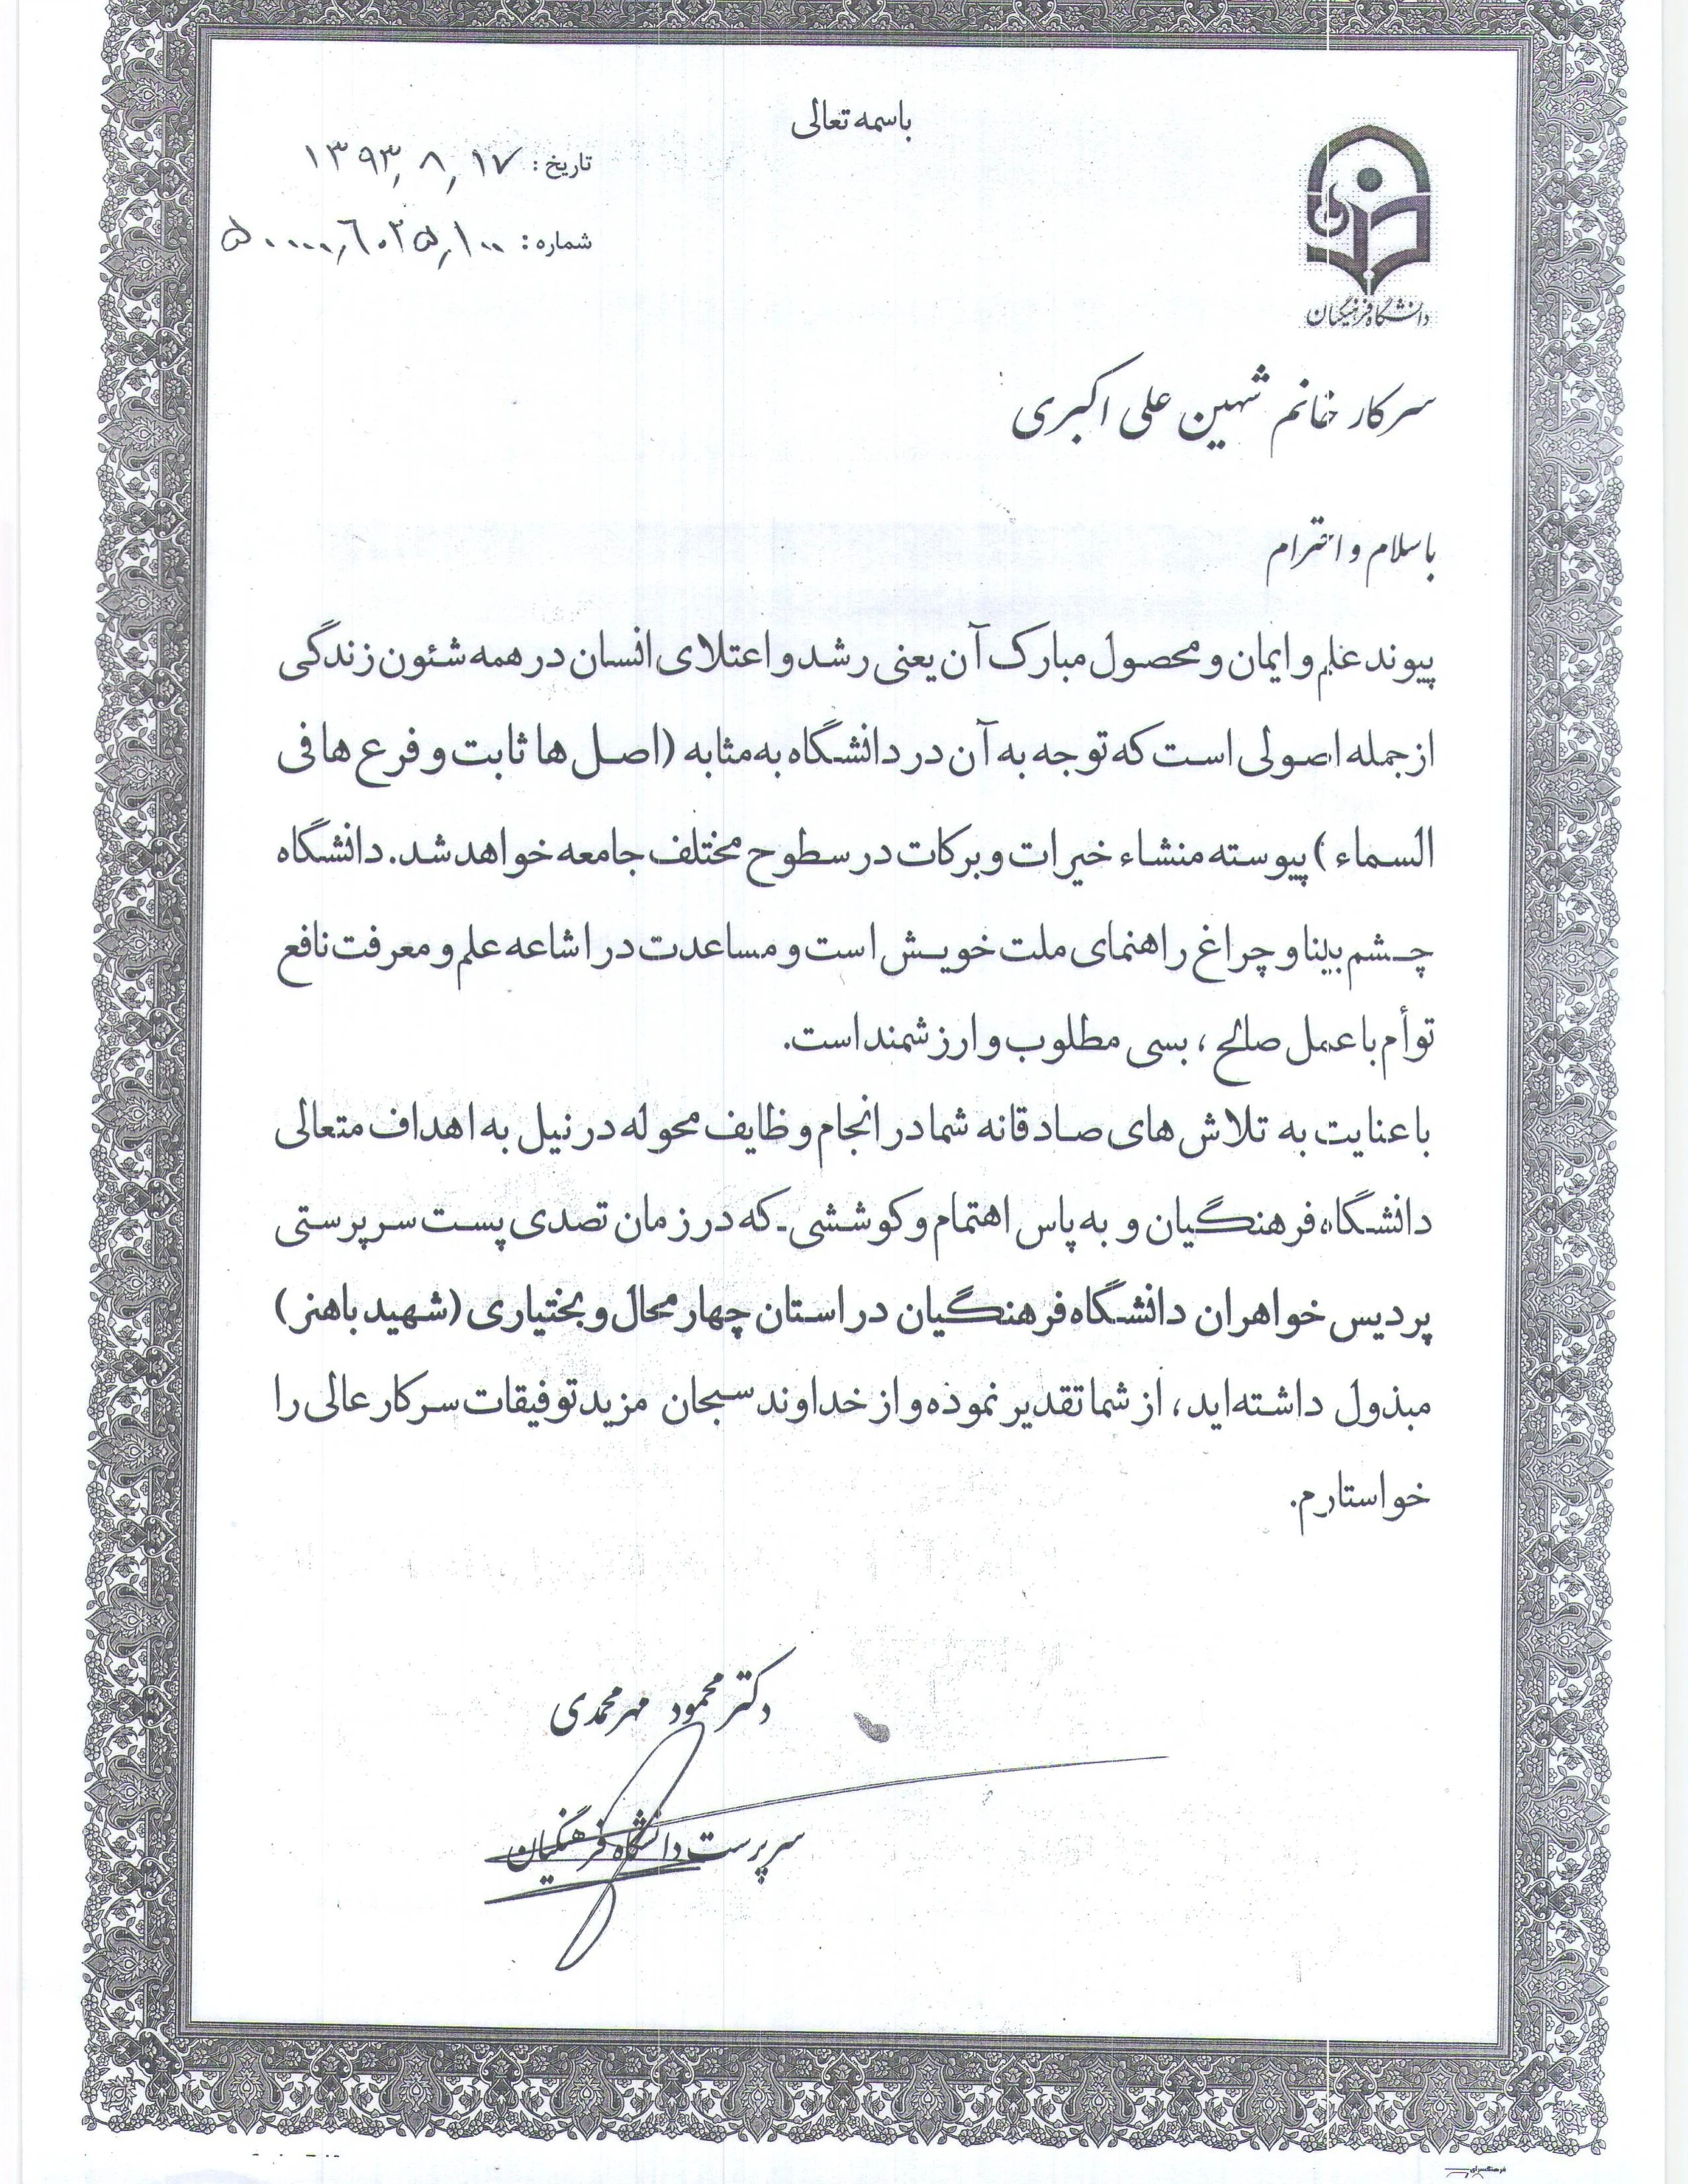 باسمه تعالی
تاریخ: ۱۳۹۳٫۸٫۱۷
شماره: ۵۰۰۰۰٫۶۰۲۵٫۱۰۰
دانشگاه فرهنگیان
سرکار خانم شهین علی اکبری
با سلام و احترام
پیوند علم و ایمان و محصول مبارک آن یعنی رشد و اعتلای انسان در همه شئون زندگی
از جمله اصولی است که توجه به آن در دانشگاه به مثابه (اصل ها ثابت و فرع ها فی
السماء) پیوسته منشاء خیرات و برکات در سطوح مختلف جامعه خواهد شد. دانشگاه
چشم بینا و چراغ راهنمای ملت خویش است و مساعدت در اشاعه علم و معرفت نافع
توأم با عمل صالح ، بسی مطلوب و ارزشمند است.
با عنایت به تلاش های صادقانه شما در انجام وظایف محوله در نیل به اهداف متعالی
دانشگاه فرهنگیان و به پاس اهتمام و کوششی که در زمان تصدی پست سرپرستی
پردیس خواهران دانشگاه فرهنگیان در استان چهار محال و بختیاری (شهید باهنر)
مبذول داشته‌اید، از شما تقدیر نموده و از خداوند سبحان مزید توفیقات سرکار عالی را
خواستارم.
دکتر محمود مهرمحمدی
سرپرست دانشگاه فرهنگیان